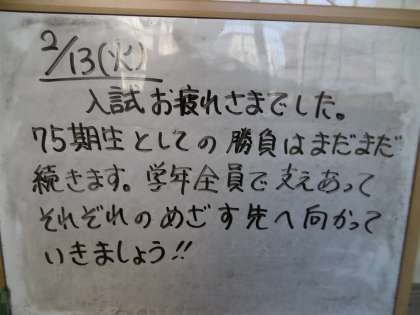 2/13(火)
入試お疲れさまでした。
75期生としての勝負はまだまだ
続きます。学年全員で支えあって
それぞれのめざす先へ向かって
いきましょう!!